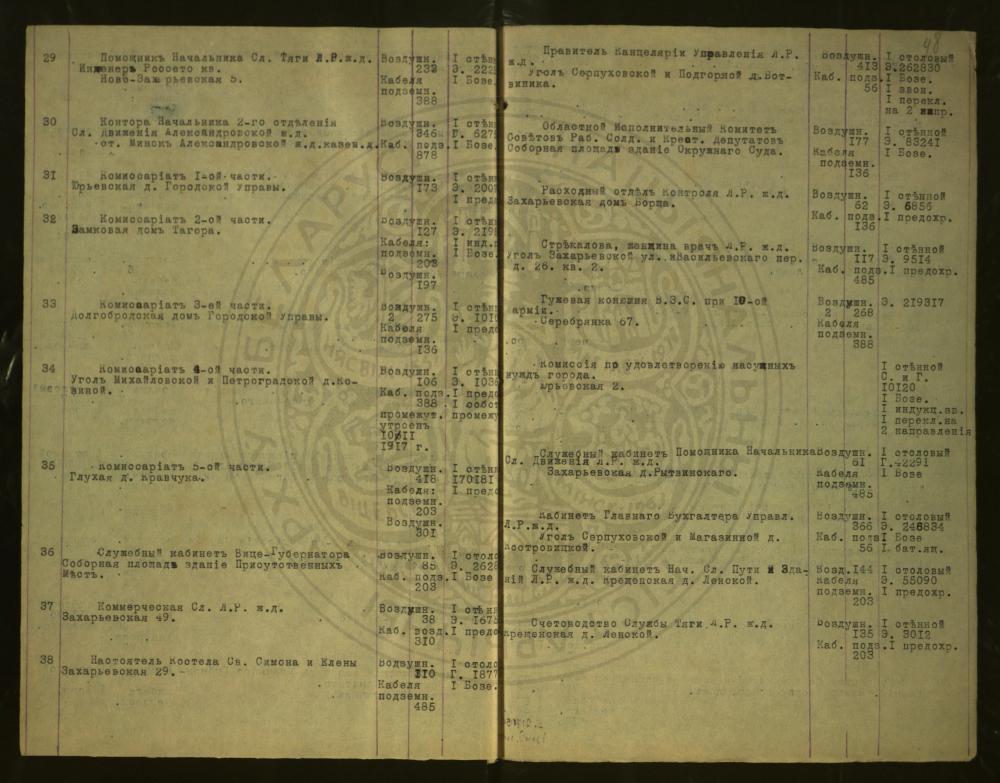 29 Помощникъ Начальника Сл. Тяги Л.Р.ж.д. Воздушн. I стѣн
Инженеръ Россето кв. 232 Э. 222
Ново-Захарьевская 5. Кабеля I Бозе
подземн.
388
30 Контора Начальника 2-го отдѣленія Воздушн. I стѣн
Сл. Движенія Александровской ж.д. 346 Г. 627
ст. Минскъ Александровской ж.д.казен.д. Каб. подз. I Бозе
878
31 Комиссаріатъ I-ой части. Воздушн. I стѣн
Юрьевская д. Городской Управы. 173 Э. 200
I предо
32 Комиссаріатъ 2-ой части. Воздушн. I стѣн
Замковая домъ Тагера. 127 Э. 219
Кабеля: I инд.
подземн. I Бозе
203
Воздушн.
197
33 Комиссаріатъ 3-ей части. Воздушн. I стѣн
Долгобродская домъ Городской Управы. 2 275 Э. 101
Кабеля I предо
подземн.
136
34 Комиссаріатъ 4-ой части. Воздушн. I стѣн
Уголъ Михайловской и Петроградской д.Ко- 106 Э. 103
виной. Каб. подз. I предо
388 I собст
промежут. промежу
утроенъ
10/II
1917 г.
35 Комиссаріатъ 5-ой части. Воздушн. I стѣн
Глухая д. Кравчука. 418 170181
Кабеля: I предо
подземн.
203
Воздушн.
301
36 Служебный кабинетъ Вице-Губернатора Воздушн. I столо
Соборная площадь зданіе Присутственныхъ 85 Э. 262
Мѣстъ. Каб. подз. I Бозе
203
37 Коммерческая Сл. Л.Р. ж.д. Воздушн. I стѣн
Захарьевская 49. 38 Э. 167
Каб. возд. I предо
310
38 Настоятель Костела Св. Симона и Елены Воздушн. I столо
Захарьевская 29. 310 Г. 187
Кабеля I Бозе.
подземн.
485
48
Правитель Канцеляріи Управленія Л.Р. Воздушн. I столовый
ж.д. 413 Э.262830
Уголъ Серпуховской и Подгорной д.Вот- Каб. подз. I Бозе.
виника. 56 I звон.
I перекл.
на 2 напр.
Областной Исполнительный Комитетъ Воздушн. I стѣнной
Совѣтовъ Раб. Солд. и Крест. Депутатовъ 177 Э. 83241
Соборная площадь зданіе Окружнаго Суда. Кабеля I Бозе.
подземн.
136
Расходный отдѣлъ Контроля Л.Р. ж.д. Воздушн. I стѣнной
Захарьевская домъ Борща. 62 Э. 6856
Каб. подз. I предохр.
136
Стрѣкалова, женщина врачъ Л.Р. ж.д. Воздушн. I стѣнной
Уголъ Захарьевской ул. и Васильевскаго пер. 117 Э. 9514
д. 26. кв. 2. Каб. подз. I предохр.
485
Гужевая конюшня В.З.С. при 10-ой Воздушн. Э. 219317
арміи. 2 268
Серебрянка 67. Кабеля
подземн.
388
Комиссія по удовлетворенію насущныхъ I стѣнной
нуждъ города. С. и Г.
Юрьевская 2. 10120
I Бозе.
I индукц.зв.
I перекл.на
2 направленія
Служебный кабинетъ Помощника Начальника Воздушн. I столовый
Сл. Движенія Л.Р. ж.д. 51 Г. 2291
Захарьевская д.Рытвинскаго. Кабеля I Бозе
подземн.
485
Кабинетъ Главнаго Бухгалтера Управл. Воздушн. I столовый
Л.Р.ж.д. 366 Э. 246834
Уголъ Серпуховской и Магазинной д. Каб. подз I Бозе
Костровицкой. 56 I бат.ящ.
Служебный кабинетъ Нач. Сл. Пути и Зда- Возд. 144 I столовый
ній Л.Р. ж.д. Крещенская д. Ленской. Кабеля Э. 55090
подземн. I предохр.
203
Счетоводство Службы Тяги Л.Р. ж.д. Воздушн. I стѣнной
Крещенская д. Ленской. 135 Э. 3012
Каб. подз. I предохр.
203